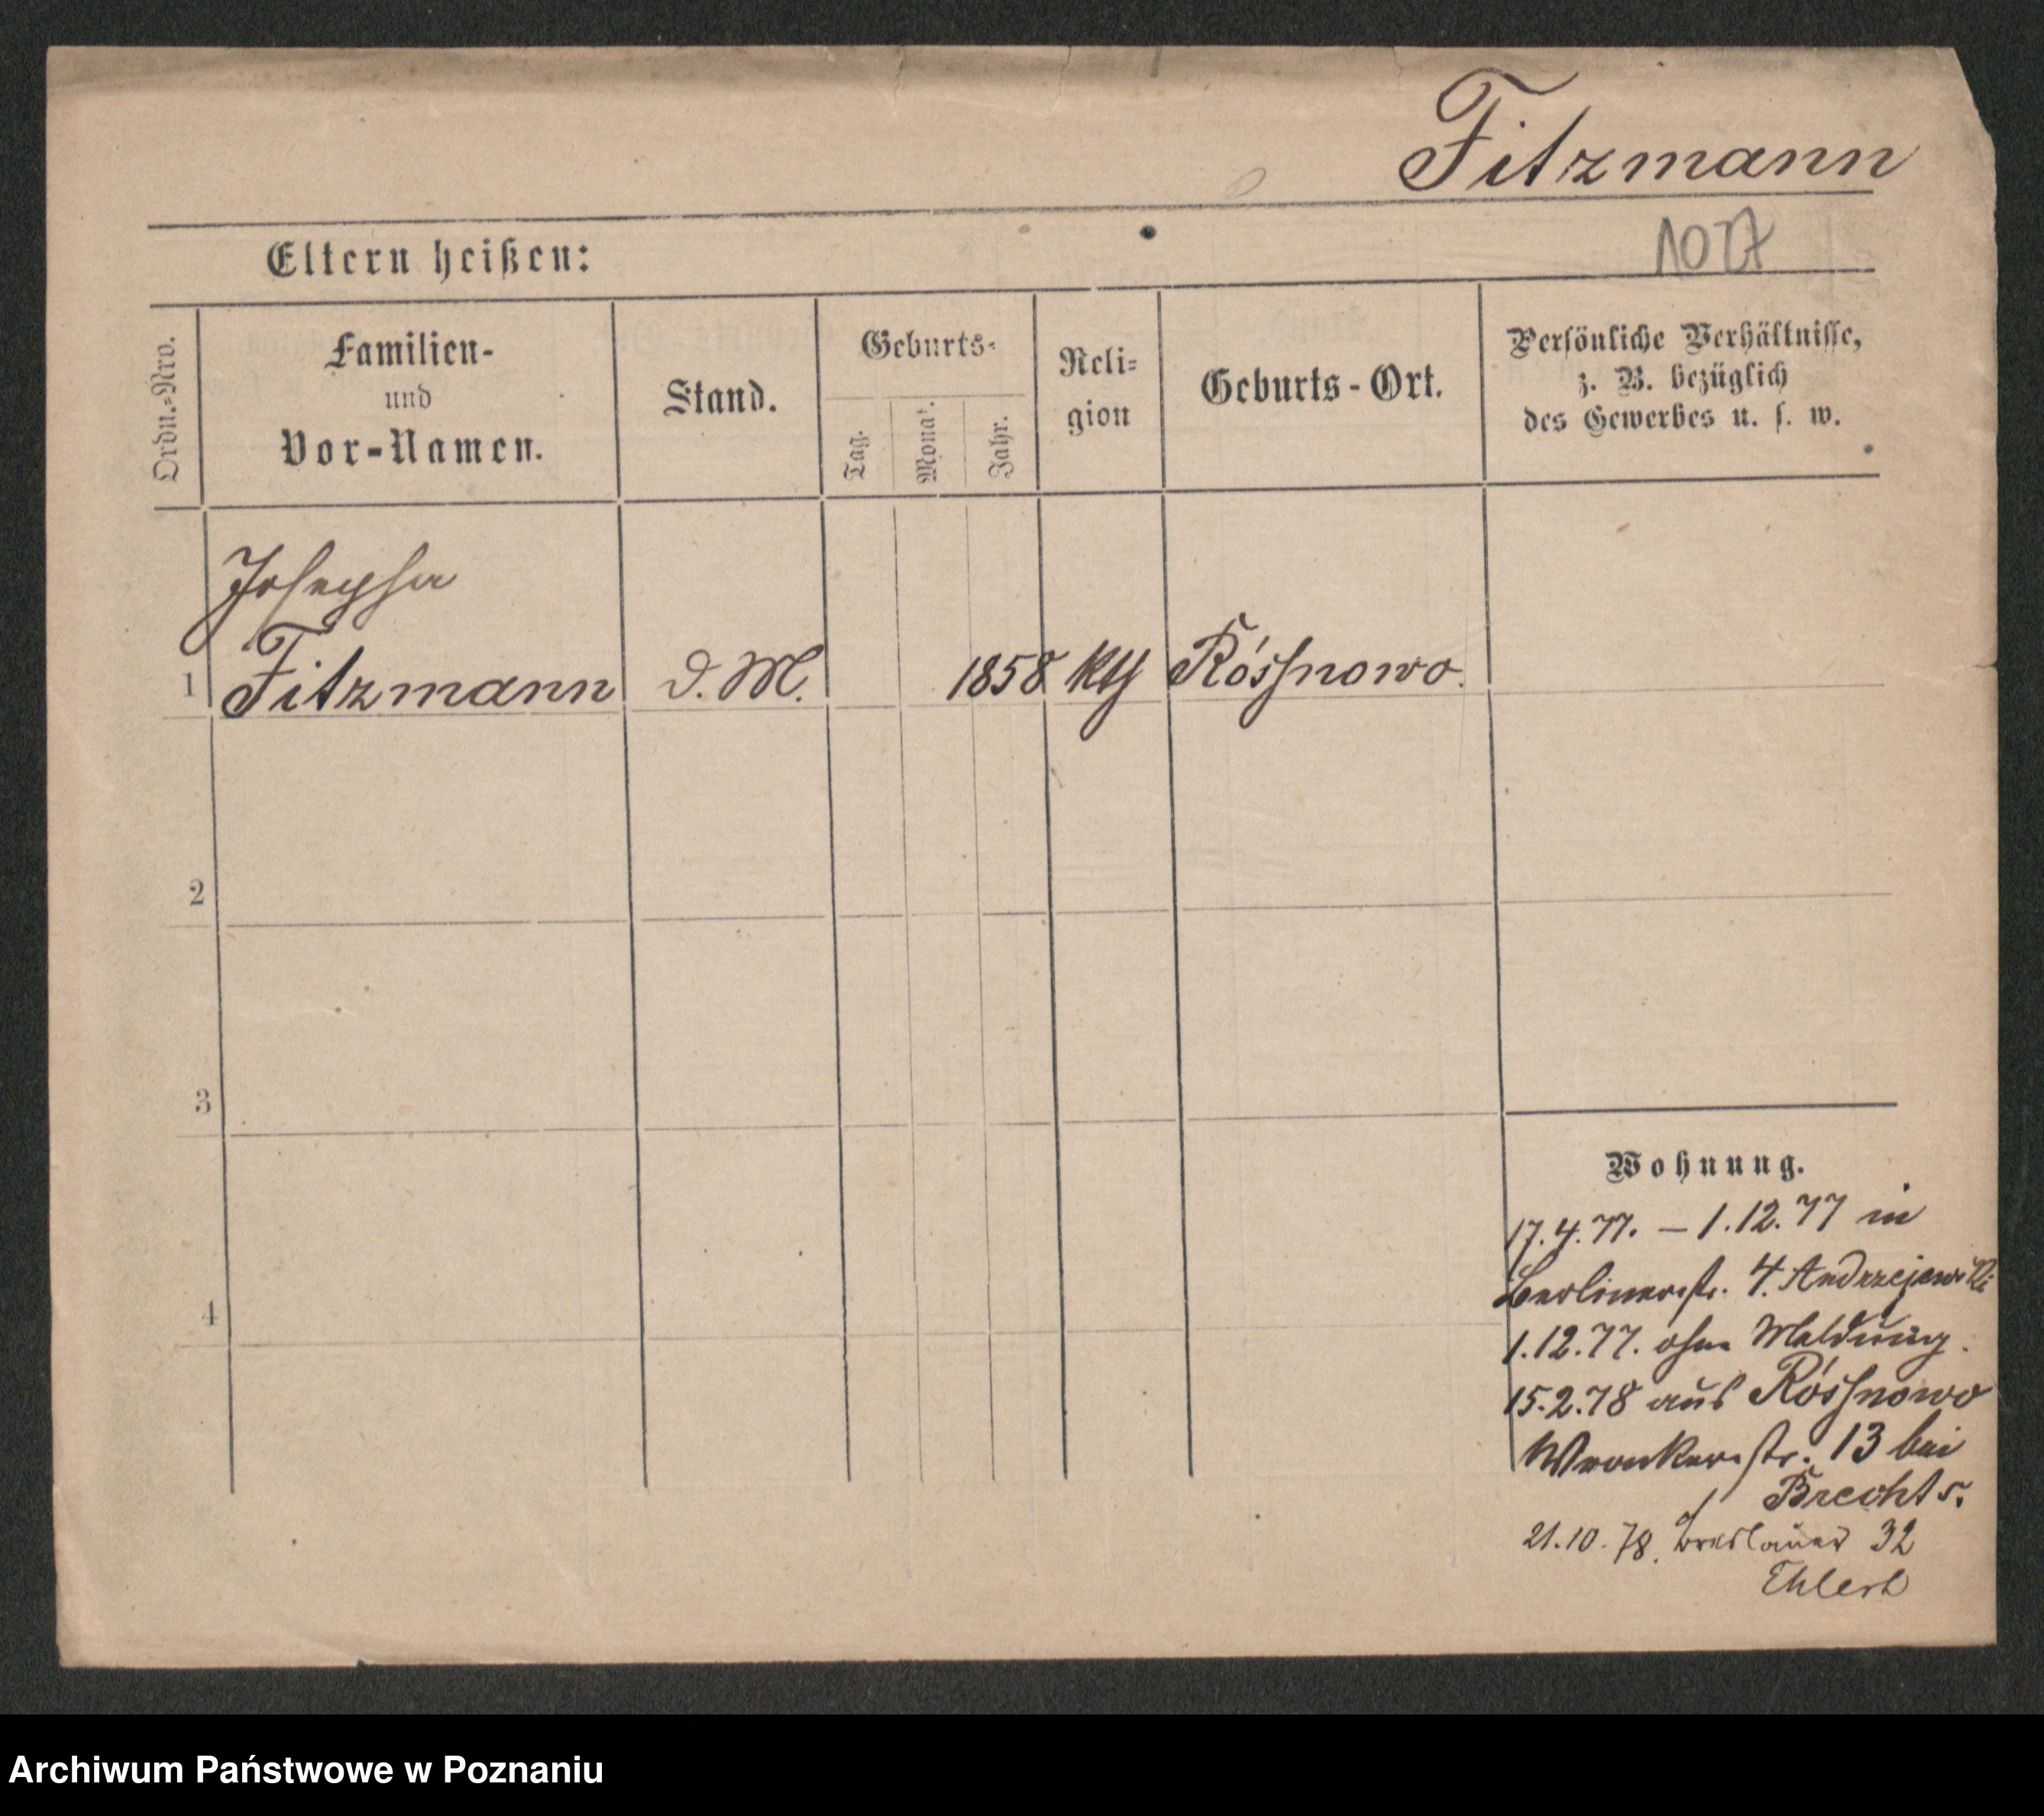 Fitzmann
1027
Eltern heißen:
Ordn.-Nro.
Familien-
und
Vor-Namen.
Stand.
Geburts-
Tag.
Monat.
Jahr.
Reli-
gion
Geburts-Ort.
Persönliche Verhältnisse,
z. B. bezüglich
des Gewerbes u. s. w.
Josepha
1 Fitzmann D. M. 1858 kth Rósſnowo.
2
3
4
Wohnung.
17.4.77. – 1.12.77 in
Berlinerstr. 4. Andrzejewski
1.12.77. ohne Meldung.
15.2.78 aus Rósſnowo
Wronkerstr. 13 bei
Brechts.
21.10.78. Breslauer 32
Ehlert
Archiwum Państwowe w Poznaniu